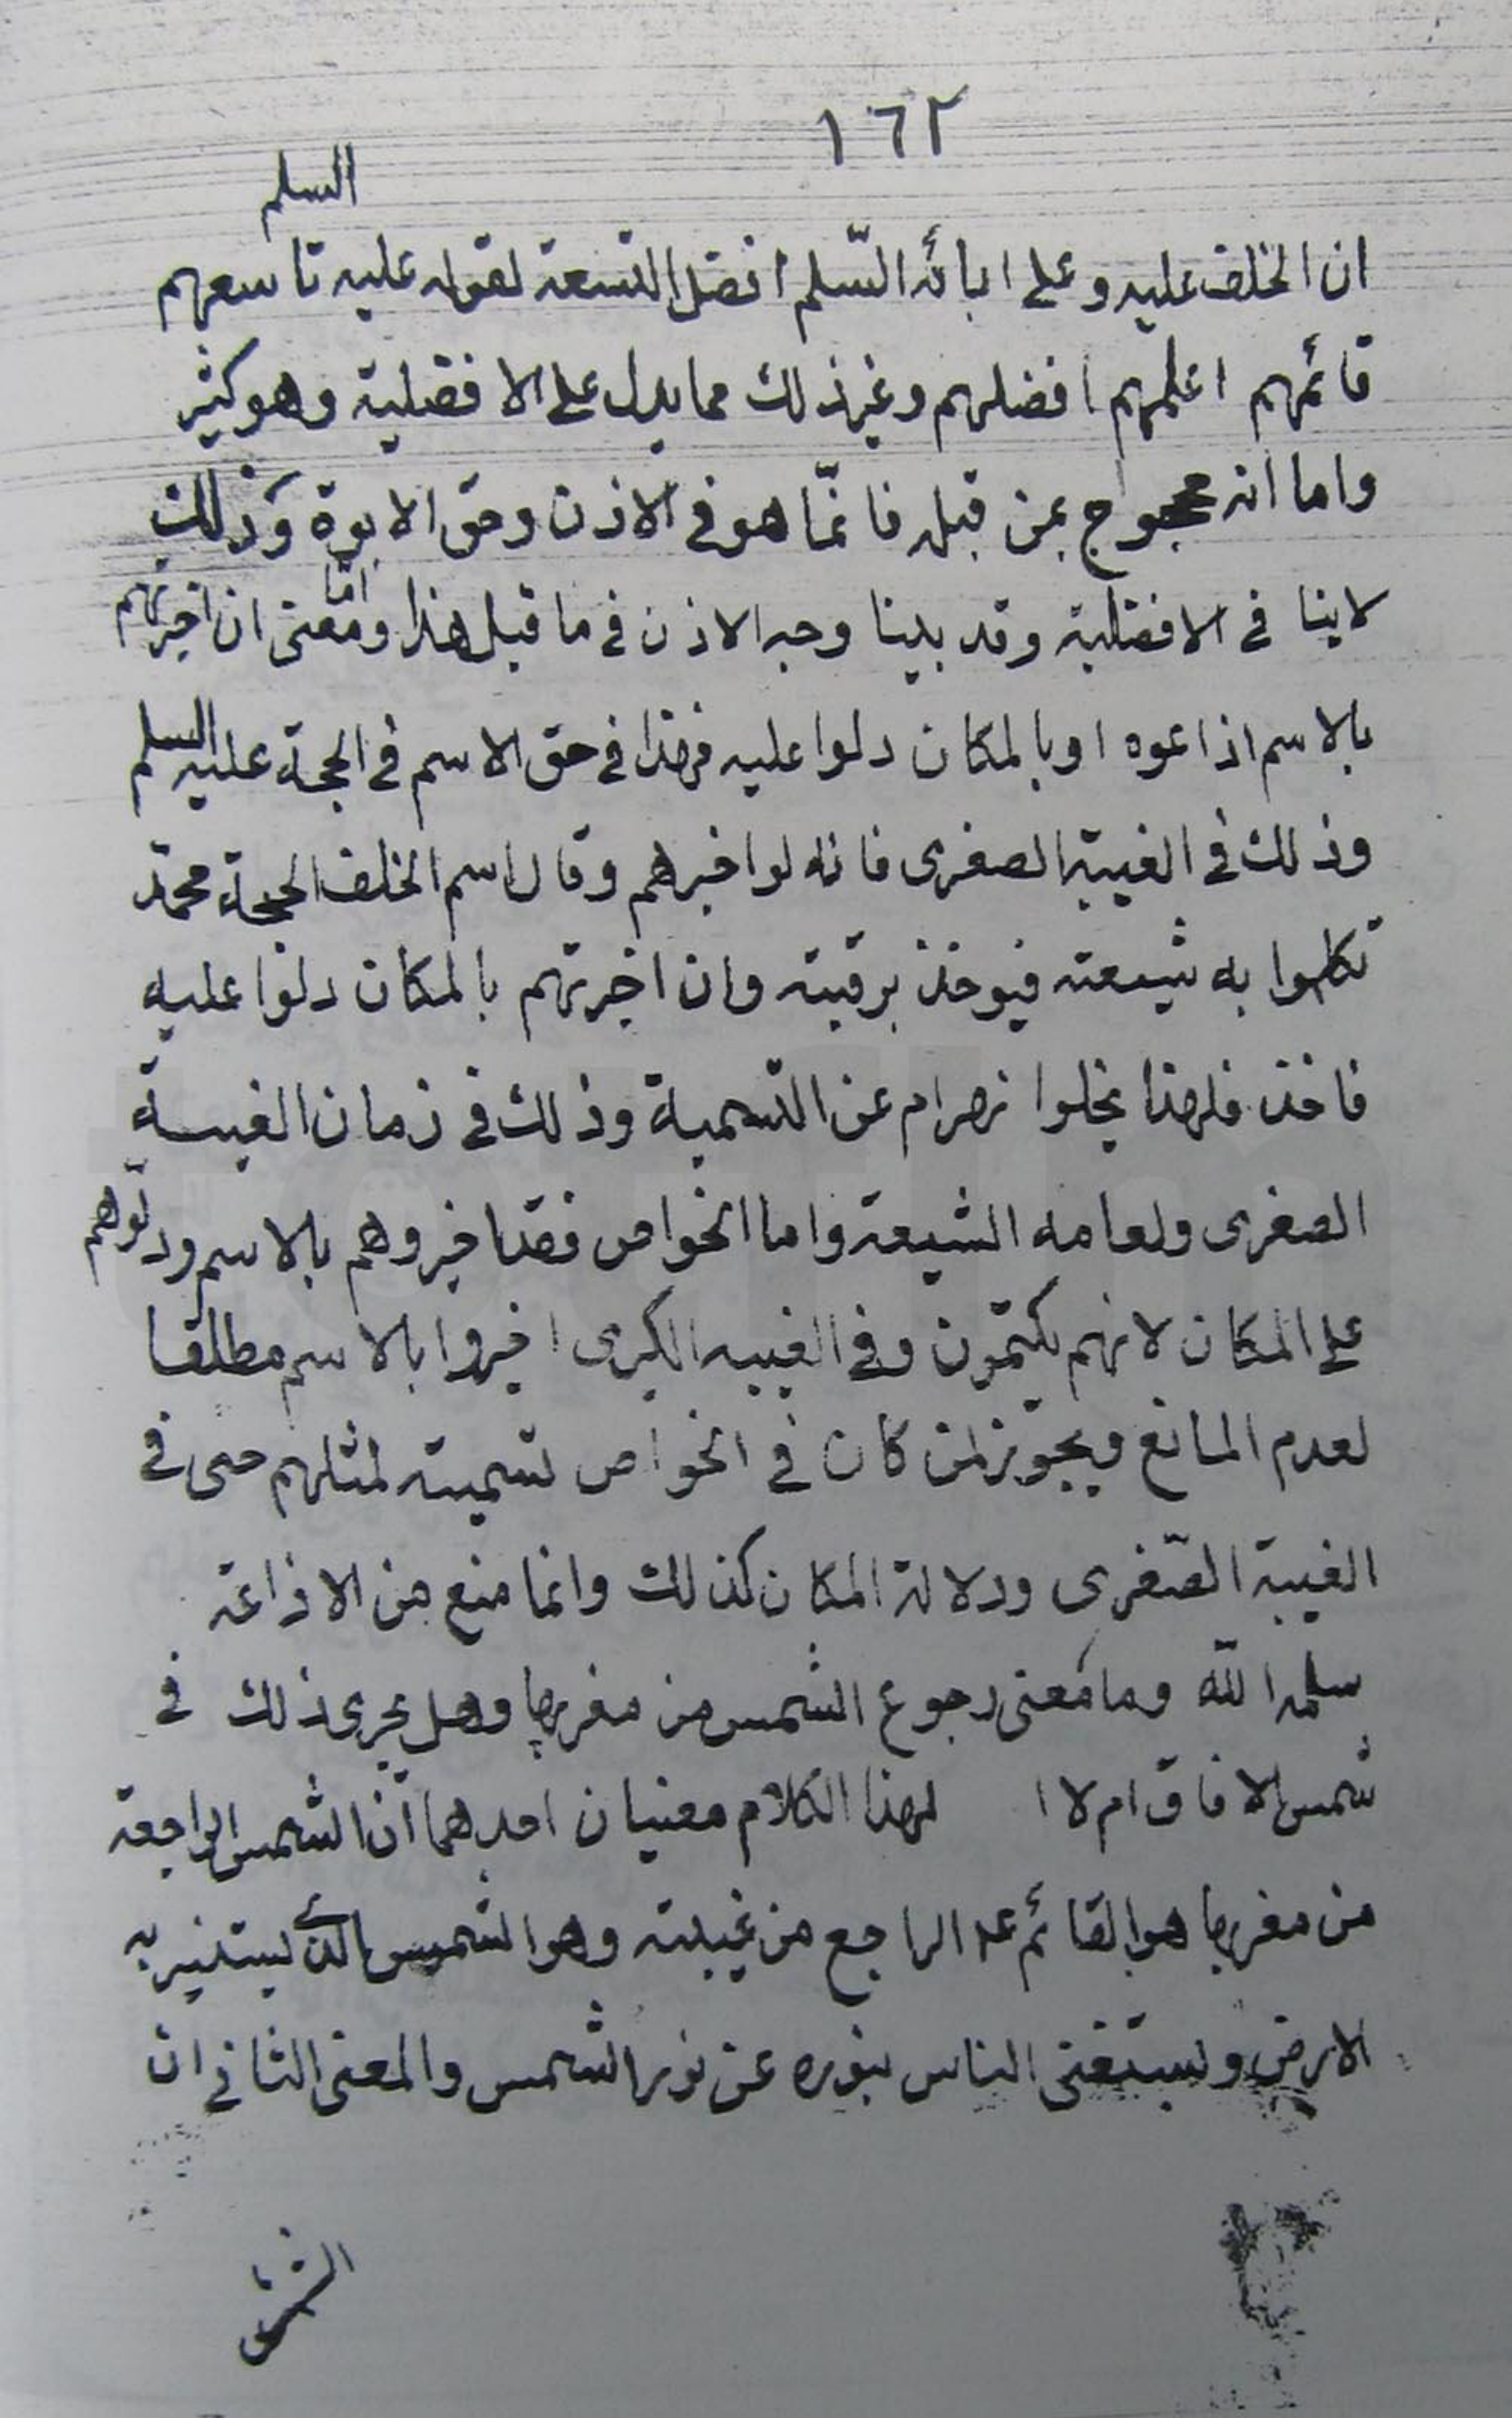 ١٦٢
السلم
ان الخلف عليه وعلى ابائه السّلم افضل التسعة لقوله عليه تاسعهم
قائمهم اعلمهم افضلهم وغير ذلك مما يدل على الافضلية وهو كثير
واما انه محجوج بمن قبله فانّما هو فى الاذن وحق الابوة وذلك
لاينا فى الافضلية وقد بينا وجه الاذن فى ما قبل هذا وامّا معنى ان اخبرتهم
بالاسم اذاعوه او بالمكان دلوا عليه فهذا فى حق الاسم فى الحجة عليه السلم
وذلك فى الغيبة الصغرى فانه لو اخبرهم وقال اسم الخلف الحجة محمّد
تكلموا به شيعته فيوخذ برقبته وان اخبرتهم بالمكان دلوا عليه
فاخذ فلهذا عن التسمية وذلك فى زمان الغيبة
الصغرى ولعامه الشيعة واما الخواص فقد اخبروهم بالاسم ودلّوهم
على المكان لانهم يكتمون وفى الغيبه الكبرى اخبروا بالاسم مطلقا
لعدم المانع ويجوز لمن كان فى الخواص تسميته لمثلهم حتى فى
الغيبة الصّغرى ودلالة المكان كذلك وانما منع من الاذاعة
سلمه الله وما معنى رجوع الشمس من مغربها وهل يجرى ذلك فى
شمس الافاق ام لا ا لهذا الكلام معنيان احدهما انّ الشمس الراجعة
من مغربها هو القائم عـ الراجع من غيبته وهو الشمس الذى يستنير به
الارض ويستغنى الناس بنوره عن نور الشمس والمعنى الثانى ان
الشمس